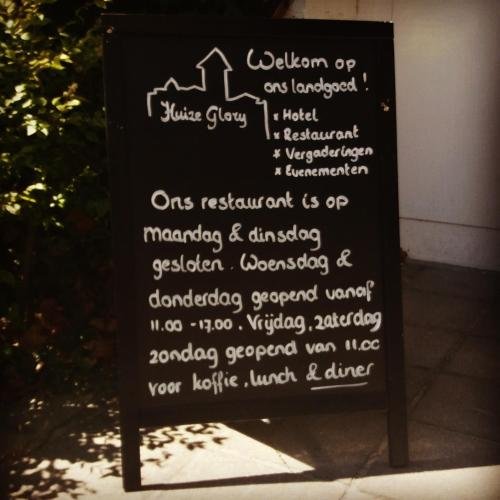 Welkom op
ons landgoed !
Huize Glory
* Hotel
* Restaurant
* Vergaderingen
* Evenementen
Ons restaurant is op
maandag & dinsdag
gesloten. Woensdag &
donderdag geopend vanaf
11.00 - 17.00. Vrijdag, zaterdag
zondag geopend van 11.00
voor koffie, lunch & diner